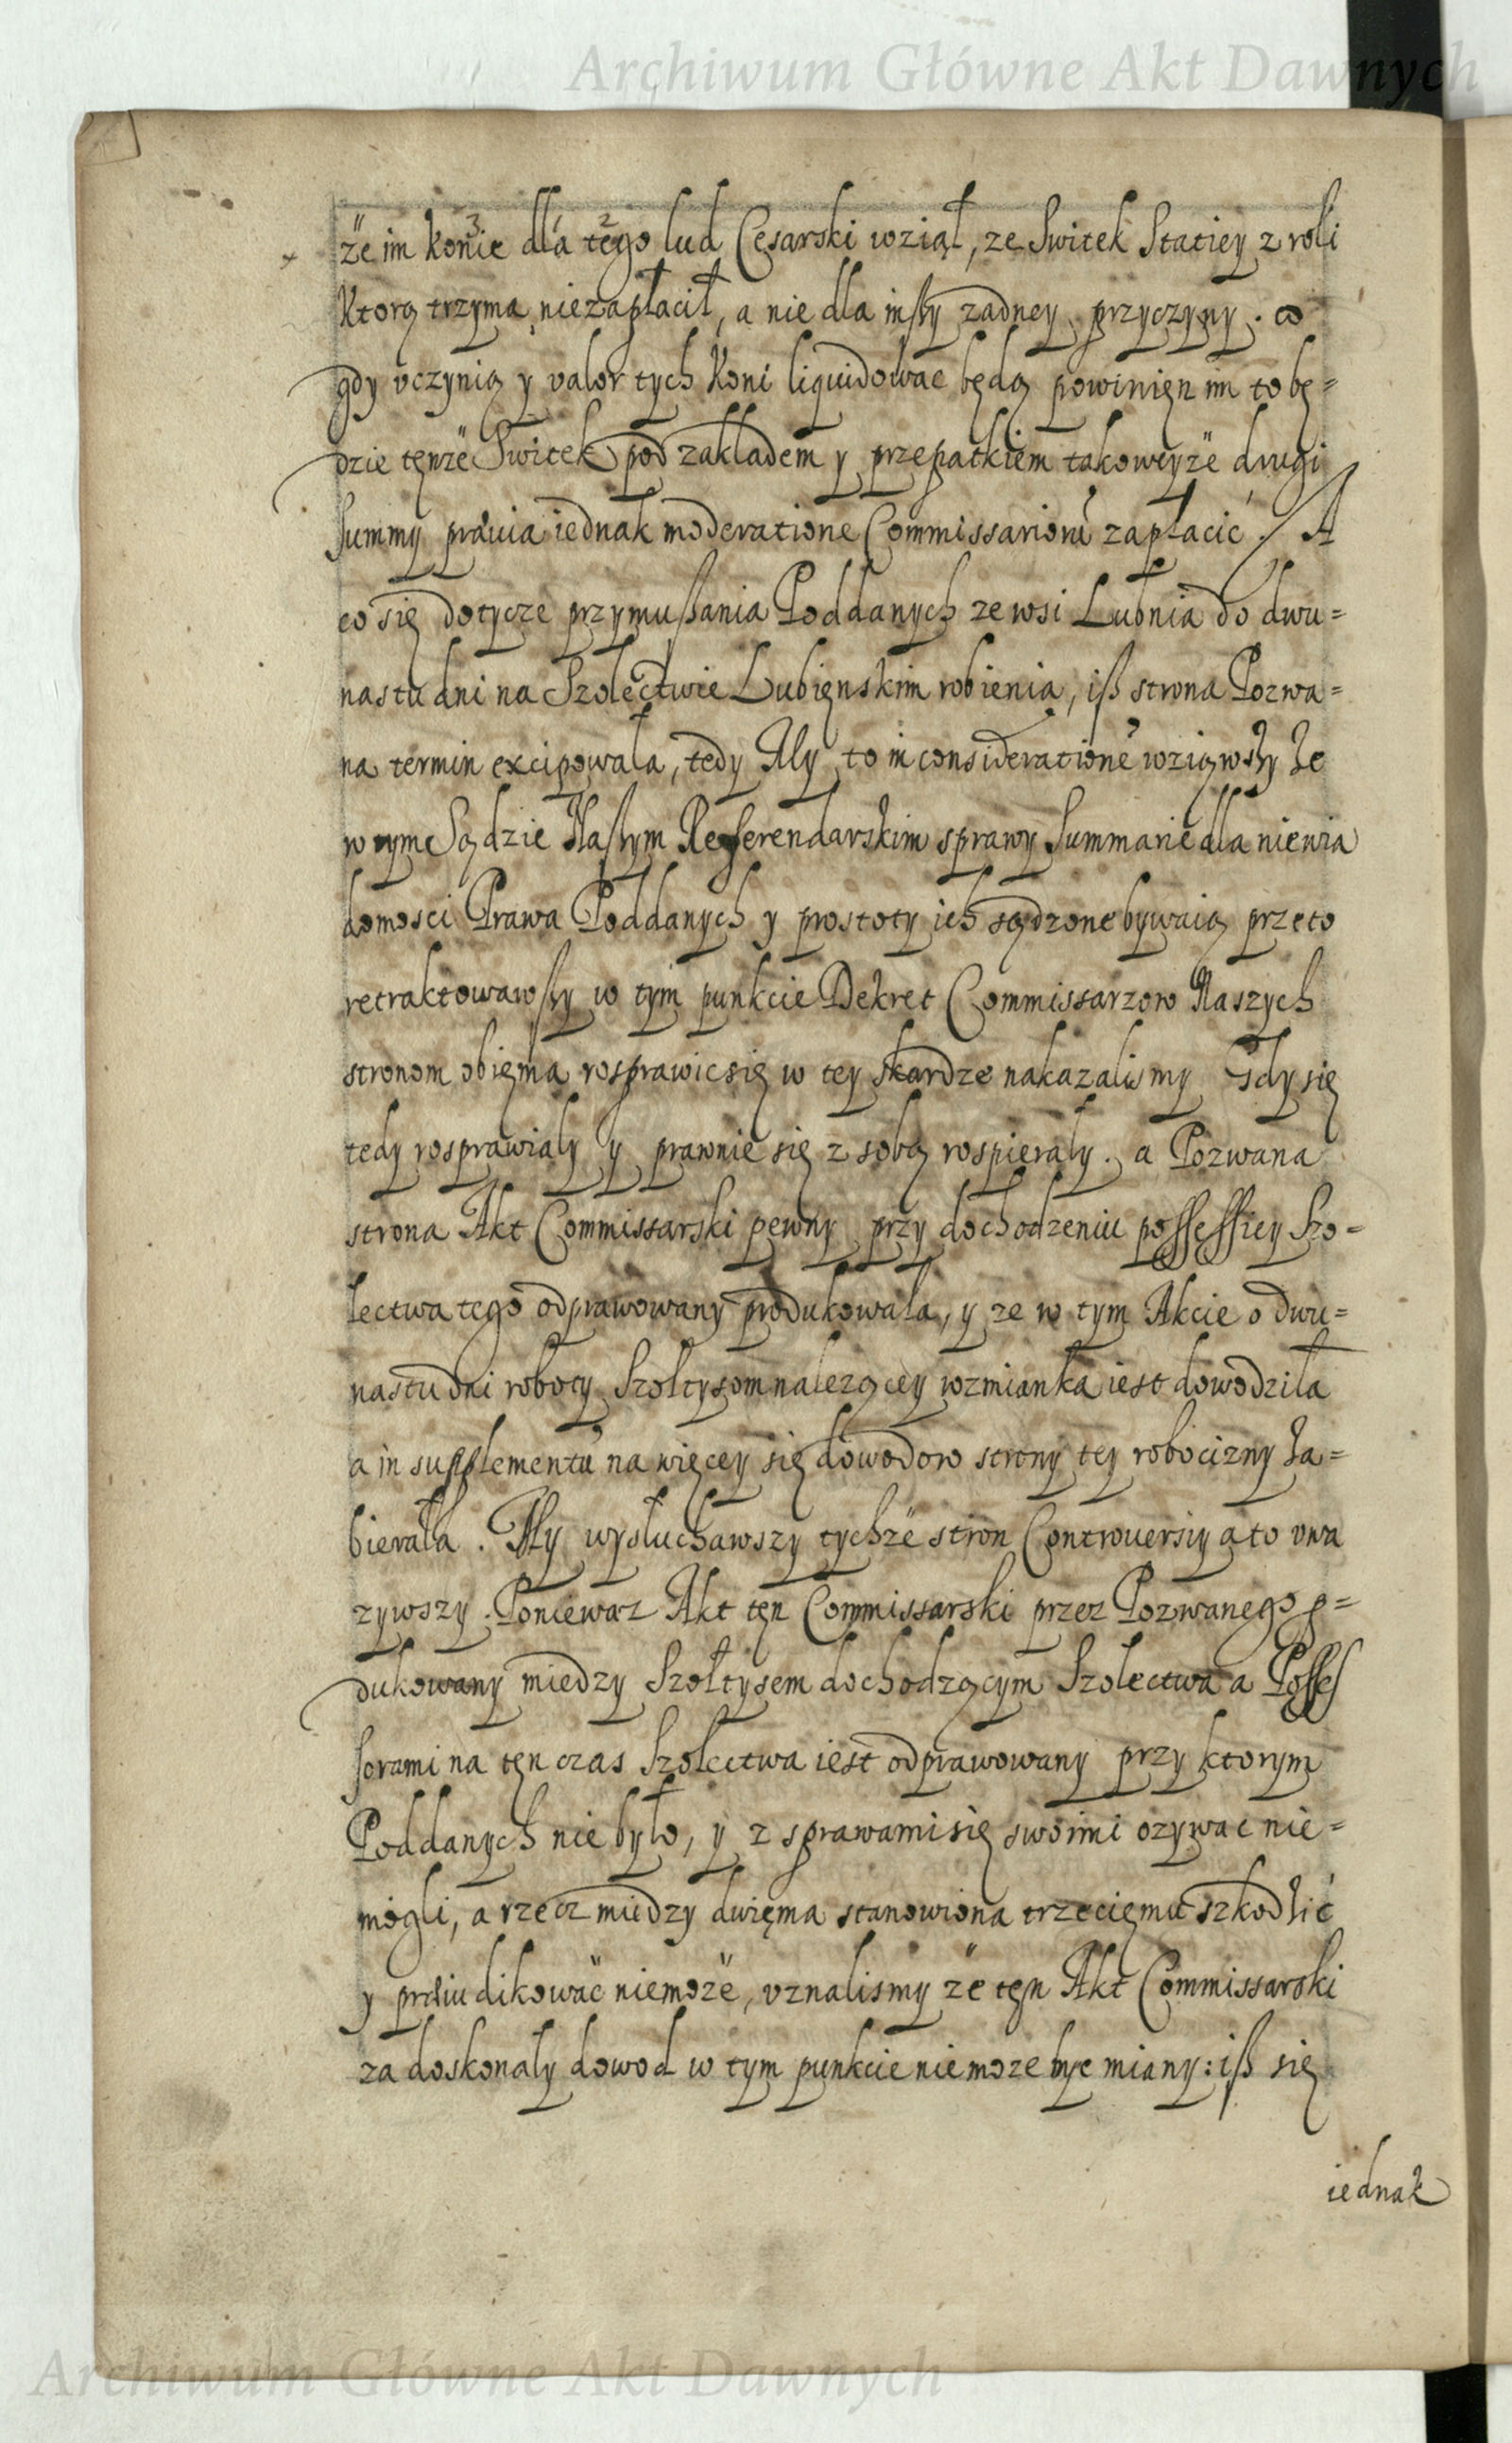 Archiwum Główne Akt Dawnych
że im konie dla tego lud Cesarski wziął, ze Switek Statiey z roli
ktorą trzyma niezapłacił, a nie dla inszy zadney przyczyny. co
gdy vczynią y valor tych koni liquidowac będą powinien im to bę=
dzie tenże Switek pod zakładem y przepatkiem takoweyże drugi
summy prævia iednak moderatione Commissariorũ zapłacić. / A
co się dotycze przymuszania Poddanych ze wsi Lubnia do dwu=
nastu dni na Szolectwie Lubienskim robienia, iß strona Pozwa=
na termin excipowała, tedy My to in consideratione wziąwszy że
w tym Sądzie Naszym Referendarskim sprawy Summarie dla niewia
domosci Prawa Poddanych y prostoty ich sądzone bywaią przeto
retraktowawszy w tym punkcie Dekret Commissarzow Naszych
stronom obiema rosprawic się w tey skardze nakazalismy Gdy się
tedy rosprawiały y prawnie się z sobą rospierały. a Pozwana
strona Akt Commissarski pewny przy dochodzeniu possessiey Szo=
lectwa tego odprawowany produkowała, y ze w tym Akcie o dwu=
nastu dni roboty Szołtysom nalezącey wzmianka iest dowodziła
a in supplementũ na więcey się dowodow strony tey robocizny za=
bierała. My wysłuchawszy tychże stron Controuersiy a to vwa
zywszy. Poniewaz Akt ten Commissarski przez Pozwanego p=
dukowany miedzy Szołtysem dochodzącym Szolectwa a Posses
sorami na ten czas Szolectwa iest odprawowany przy ktorym
Poddanych nie było, y z sprawami się swoimi ozywac nie=
mogli, a rzecz miedzy dwiema stanowiona trzeciemu szkodzić
y præiudikowac niemoże, vznalismy że ten Akt Commissarski
za doskonały dowod w tym punkcie niemoze byc miany: iß się
iednak
Archiwum Główne Akt Dawnych